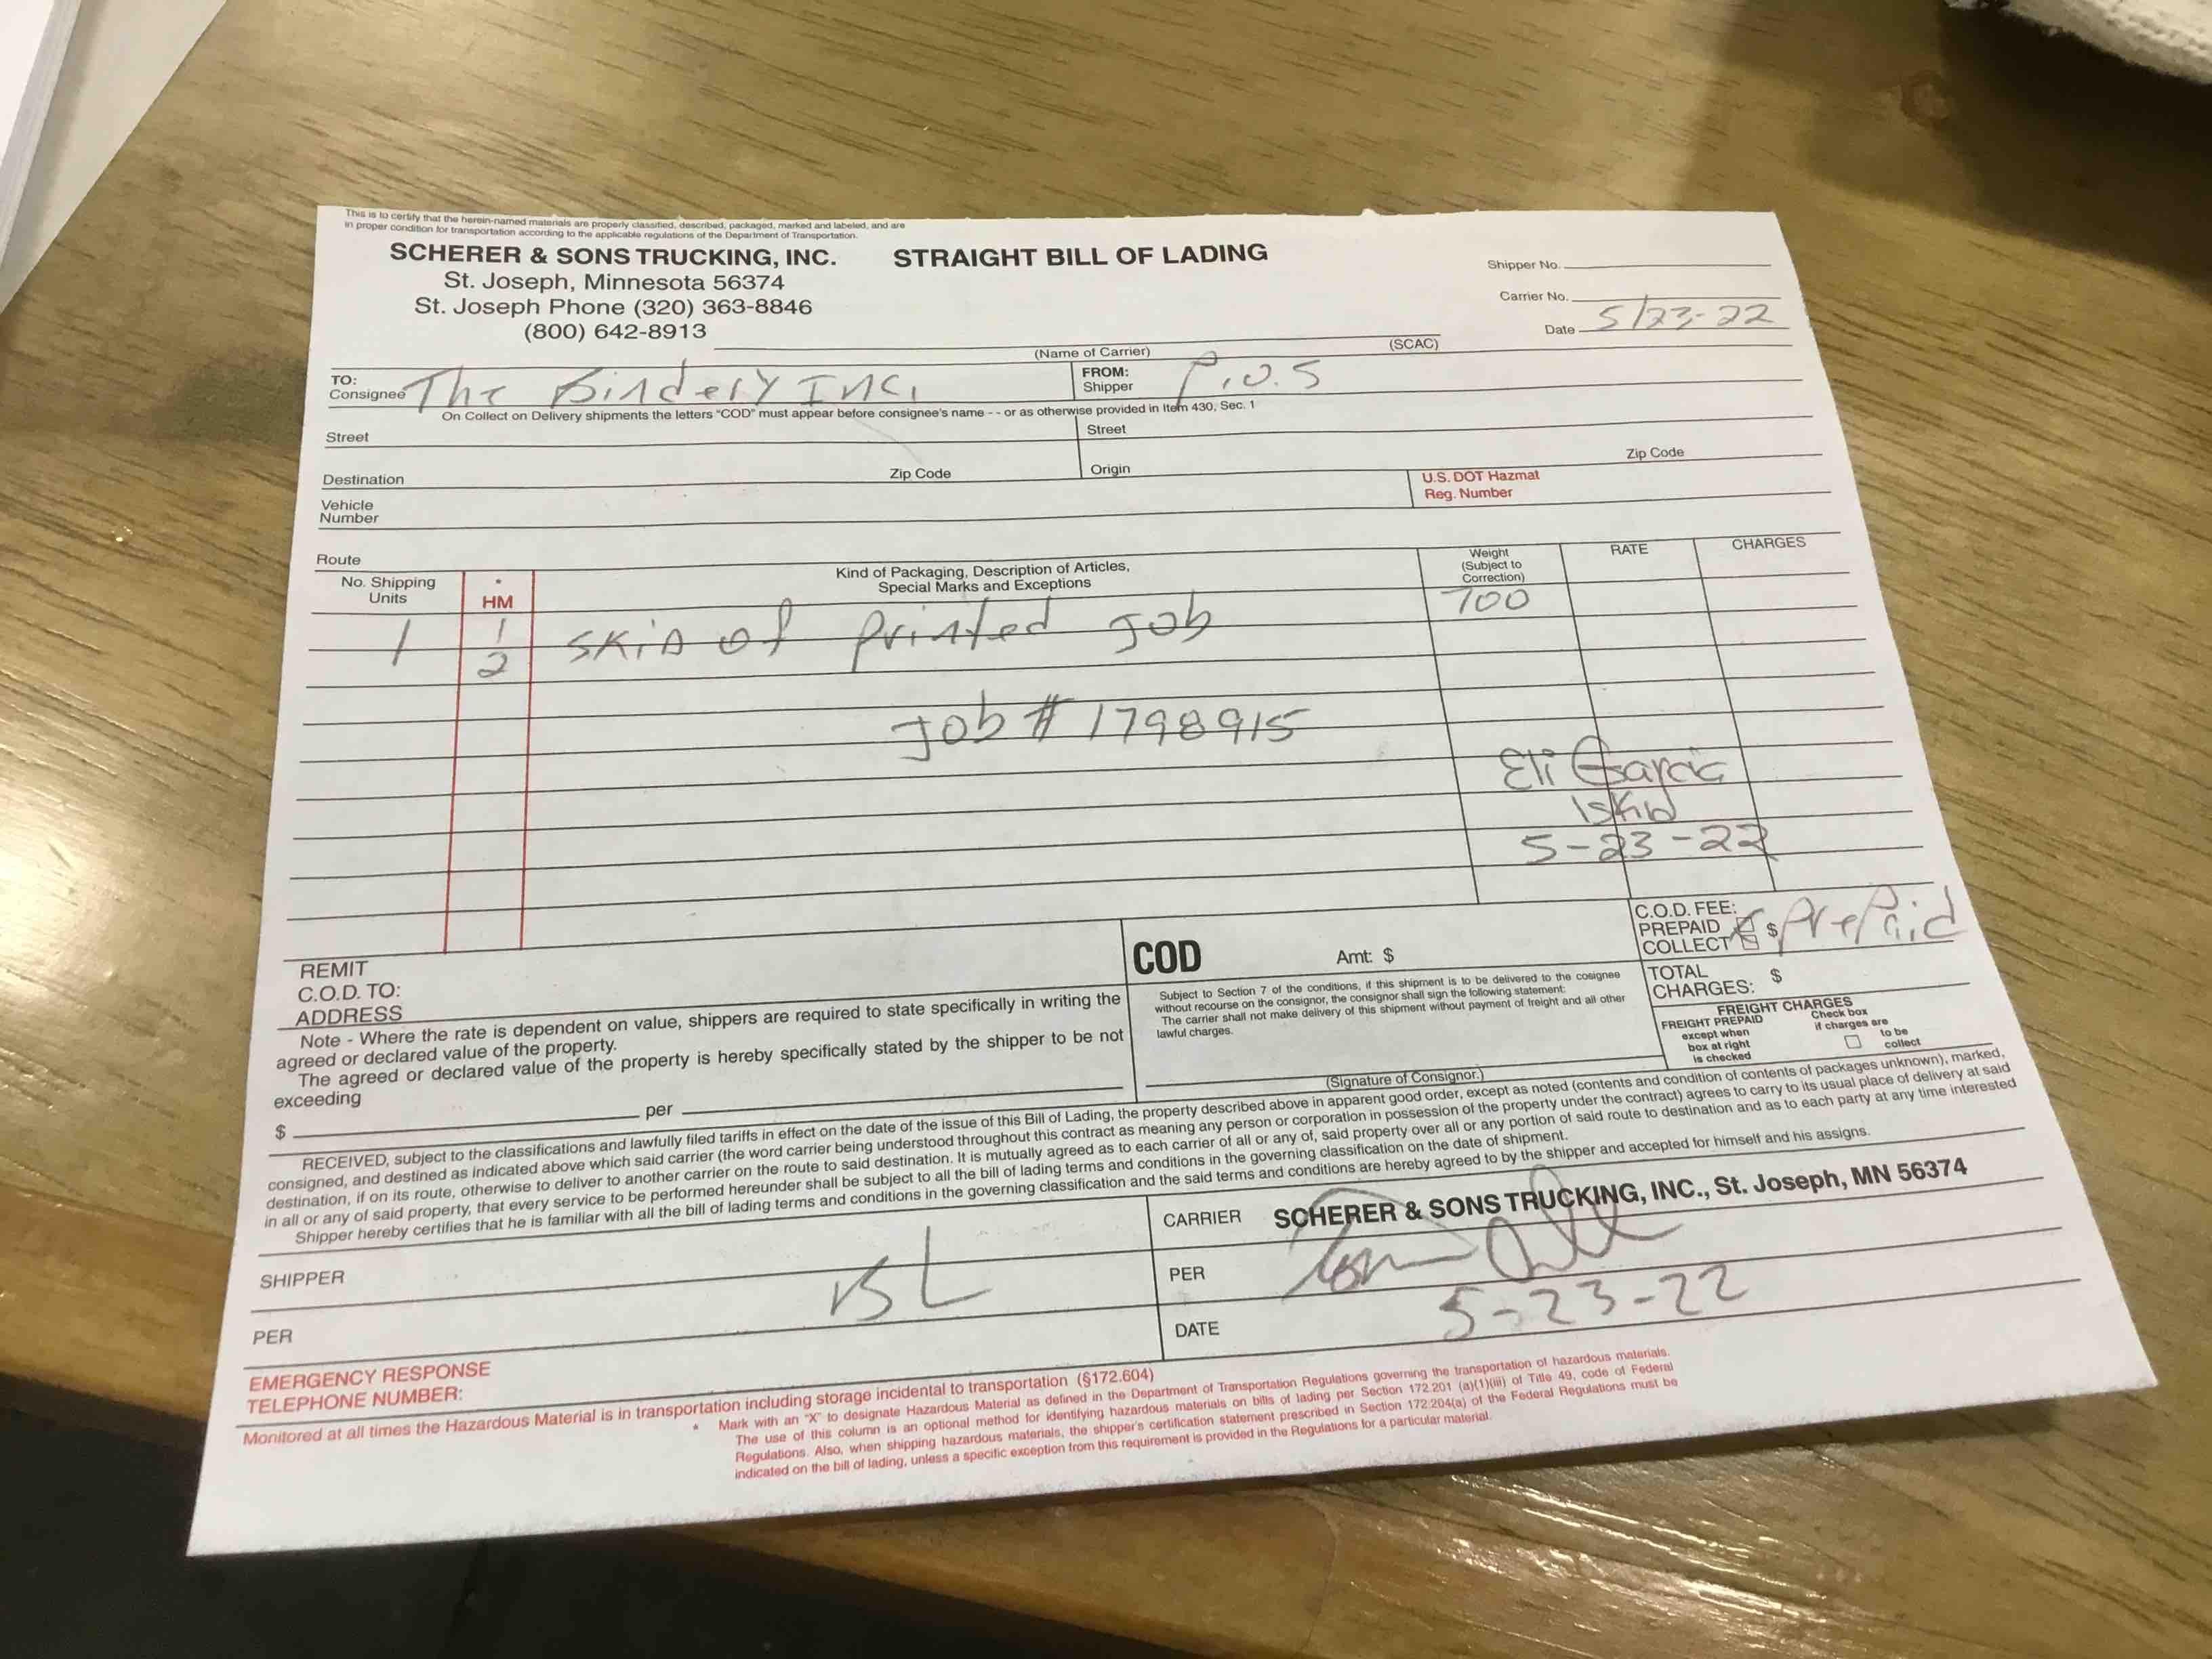 This is to certify that the herein-named materials are properly classified, described, packaged, marked and labeled, and are
in proper condition for transportation according to the applicable regulations of the Department of Transportation.
SCHERER & SONS TRUCKING, INC. STRAIGHT BILL OF LADING
St. Joseph, Minnesota 56374
St. Joseph Phone (320) 363-8846
(800) 642-8913
Shipper No.
Carrier No.
Date 5/23-22
(Name of Carrier) (SCAC)
TO:
Consignee The Bindery Inc.
FROM:
Shipper P.O.S
On Collect on Delivery shipments the letters "COD" must appear before consignee's name - - or as otherwise provided in Item 430, Sec. 1
Street Street
Destination Zip Code Origin Zip Code
Vehicle
Number
U.S. DOT Hazmat
Reg. Number
Route
No. Shipping
Units
*
HM
Kind of Packaging, Description of Articles,
Special Marks and Exceptions
Weight
(Subject to
Correction)
RATE
CHARGES
1 1/2 SKID of Printed Job 700
Job # 1798915
Eli Garcia
1 SKid
5-23-22
REMIT
C.O.D. TO:
ADDRESS
COD Amt: $
C.O.D. FEE:
PREPAID
COLLECT $ PrePaid
Note - Where the rate is dependent on value, shippers are required to state specifically in writing the
agreed or declared value of the property.
The agreed or declared value of the property is hereby specifically stated by the shipper to be not
exceeding
$ per
Subject to Section 7 of the conditions, if this shipment is to be delivered to the cosignee
without recourse on the consignor, the consignor shall sign the following statement:
The carrier shall not make delivery of this shipment without payment of freight and all other
lawful charges.
(Signature of Consignor.)
TOTAL
CHARGES: $
FREIGHT CHARGES
FREIGHT PREPAID
except when
box at right
is checked
Check box
if charges are
to be
collect
RECEIVED, subject to the classifications and lawfully filed tariffs in effect on the date of the issue of this Bill of Lading, the property described above in apparent good order, except as noted (contents and condition of contents of packages unknown), marked,
consigned, and destined as indicated above which said carrier (the word carrier being understood throughout this contract as meaning any person or corporation in possession of the property under the contract) agrees to carry to its usual place of delivery at said
destination, if on its route, otherwise to deliver to another carrier on the route to said destination. It is mutually agreed as to each carrier of all or any of, said property over all or any portion of said route to destination and as to each party at any time interested
in all or any of said property, that every service to be performed hereunder shall be subject to all the bill of lading terms and conditions in the governing classification on the date of shipment.
Shipper hereby certifies that he is familiar with all the bill of lading terms and conditions in the governing classification and the said terms and conditions are hereby agreed to by the shipper and accepted for himself and his assigns.
SHIPPER
PER
BL
CARRIER SCHERER & SONS TRUCKING, INC., St. Joseph, MN 56374
PER
DATE 5-23-22
EMERGENCY RESPONSE
TELEPHONE NUMBER:
Monitored at all times the Hazardous Material is in transportation including storage incidental to transportation (§172.604)
* Mark with an "X" to designate Hazardous Material as defined in the Department of Transportation Regulations governing the transportation of hazardous materials.
The use of this column is an optional method for identifying hazardous materials on bills of lading per Section 172.201 (a)(1)(iii) of Title 49, code of Federal
Regulations. Also, when shipping hazardous materials, the shipper's certification statement prescribed in Section 172.204(a) of the Federal Regulations must be
indicated on the bill of lading, unless a specific exception from this requirement is provided in the Regulations for a particular material.